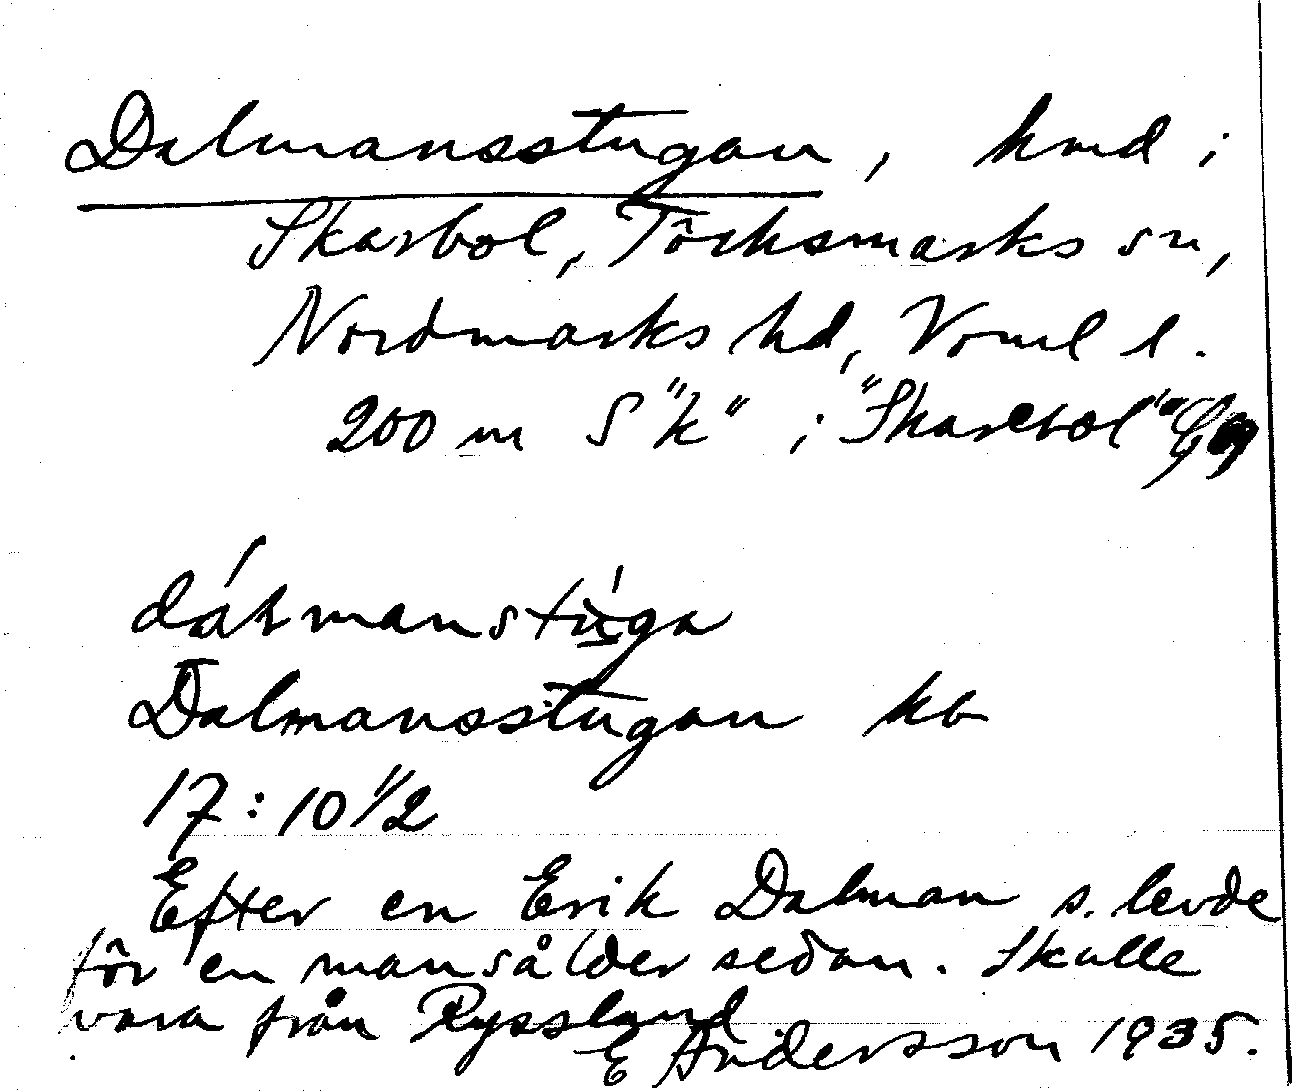 Dalmansstugan, hmd i
Skarbol, Töcksmarks sn,
Nordmarks hd, Vrml l.
200 m S "k" i "Skarbol"
dálmanstúga
Dalmansstugan kb
17:10 1/2
Efter en Erik Dalman s. levde
för en mansålder sedan. Skulle
vara från Ryssland
E Andersson 1935.